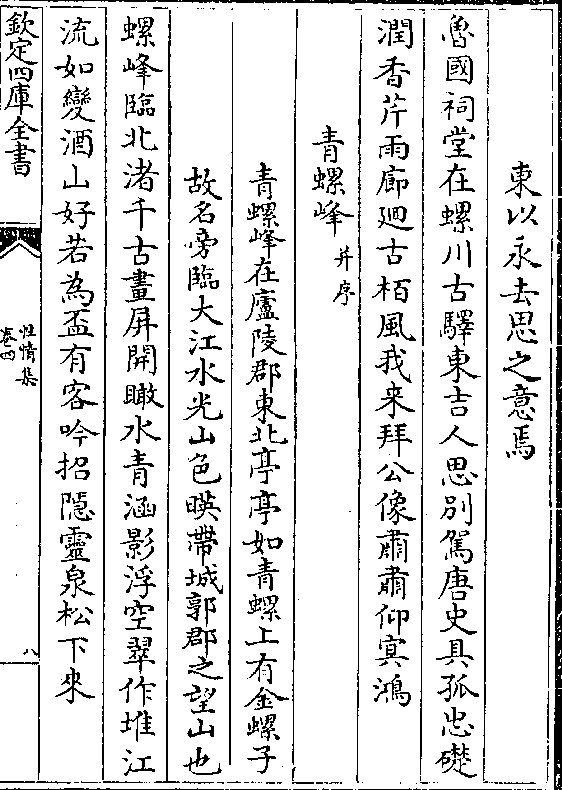 東以永去思之意焉
魯國祠堂在螺川古驛東吉人思别駕唐史具孤忠礎
潤香芹雨廊廻古栢風我来拜公像肅肅仰㝠鴻
青螺峰并序
青螺峰在廬陵郡東北亭亭如青螺上有金螺子
故名旁臨大江水光山色暎帶城郭郡之望山也
螺峰臨北渚千古畫屏開瞰水青涵影浮空翠作堆江
流如變酒山好若為盃有客吟招隠靈泉松下來
欽定四庫全書
性情集
卷四
八